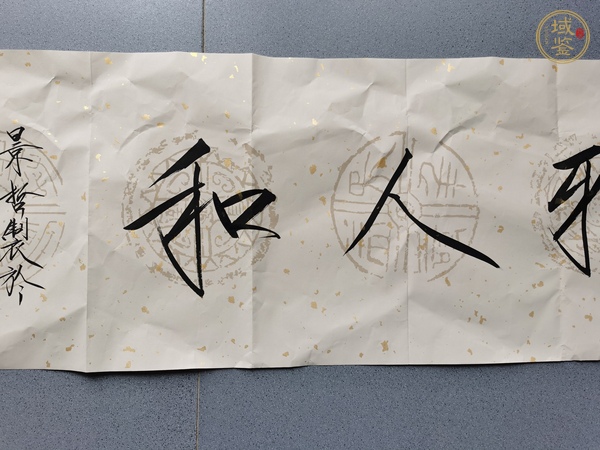 人和
景哲製於
域鉴